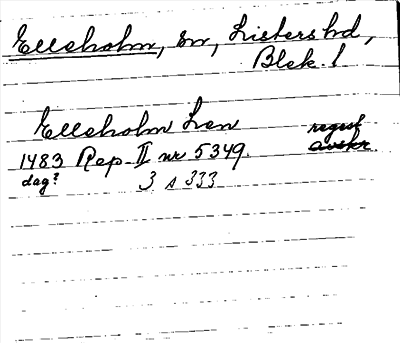 Elleholm, sn, Listers hd,
Blek. l
Elleholm Len
1483 Rep. II nr 5349.
dag? 3 s 333
regist
avskr.